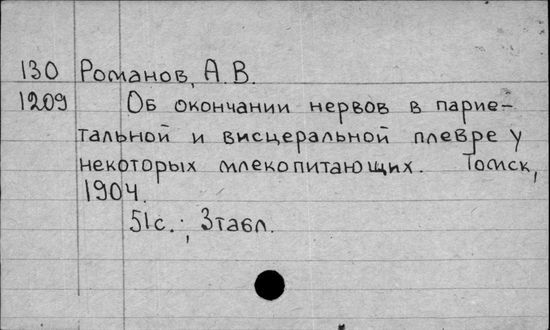 130 Романов, А. В.
1209 Об окончании нервов в парие-
тальной и висцеральной плевре у
некоторых млекопитающих. Томск,
1904.
51с.; 3табл.